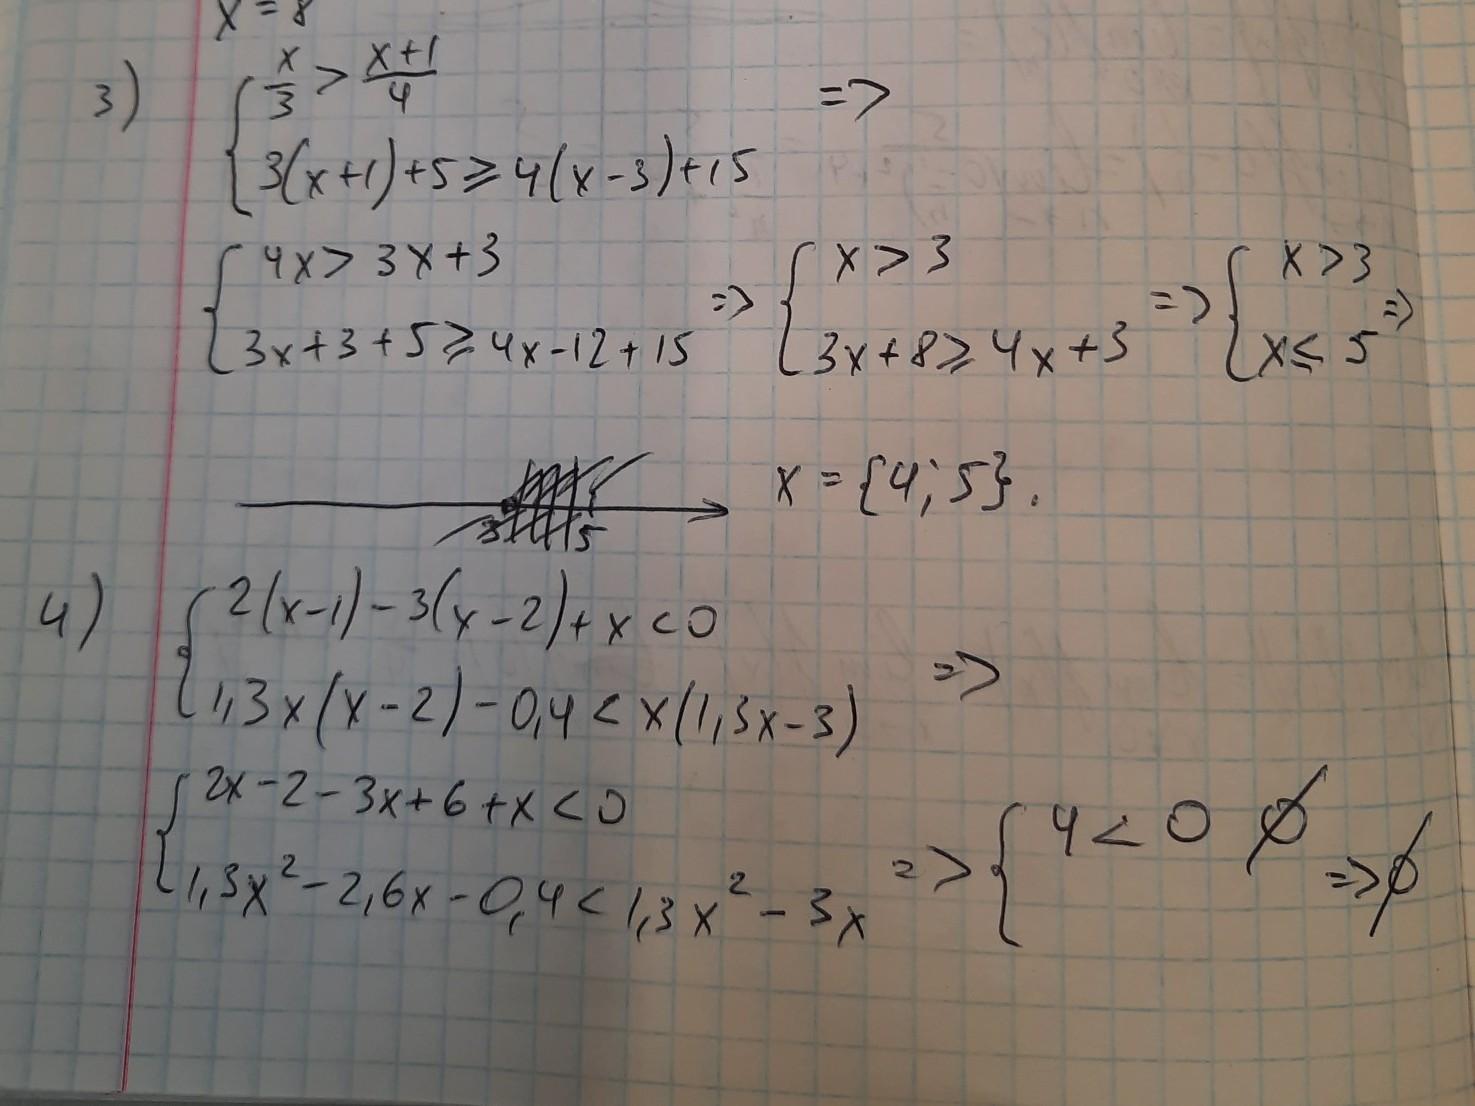 x = 8
3) { x/3 > (x+1)/4 =>
3(x+1)+5 ⩾ 4(x-3)+15
{ 4x > 3x+3
3x+3+5 ⩾ 4x-12+15 => { x > 3
3x+8 ⩾ 4x+3 => { x > 3
x ⩽ 5 =>
3 5 x = {4; 5}.
4) { 2(x-1)-3(x-2)+x < 0
1,3x(x-2)-0,4 < x(1,3x-3) =>
{ 2x-2-3x+6+x < 0
1,3x²-2,6x-0,4 < 1,3x²-3x => { 4 < 0 ∅ => ∅